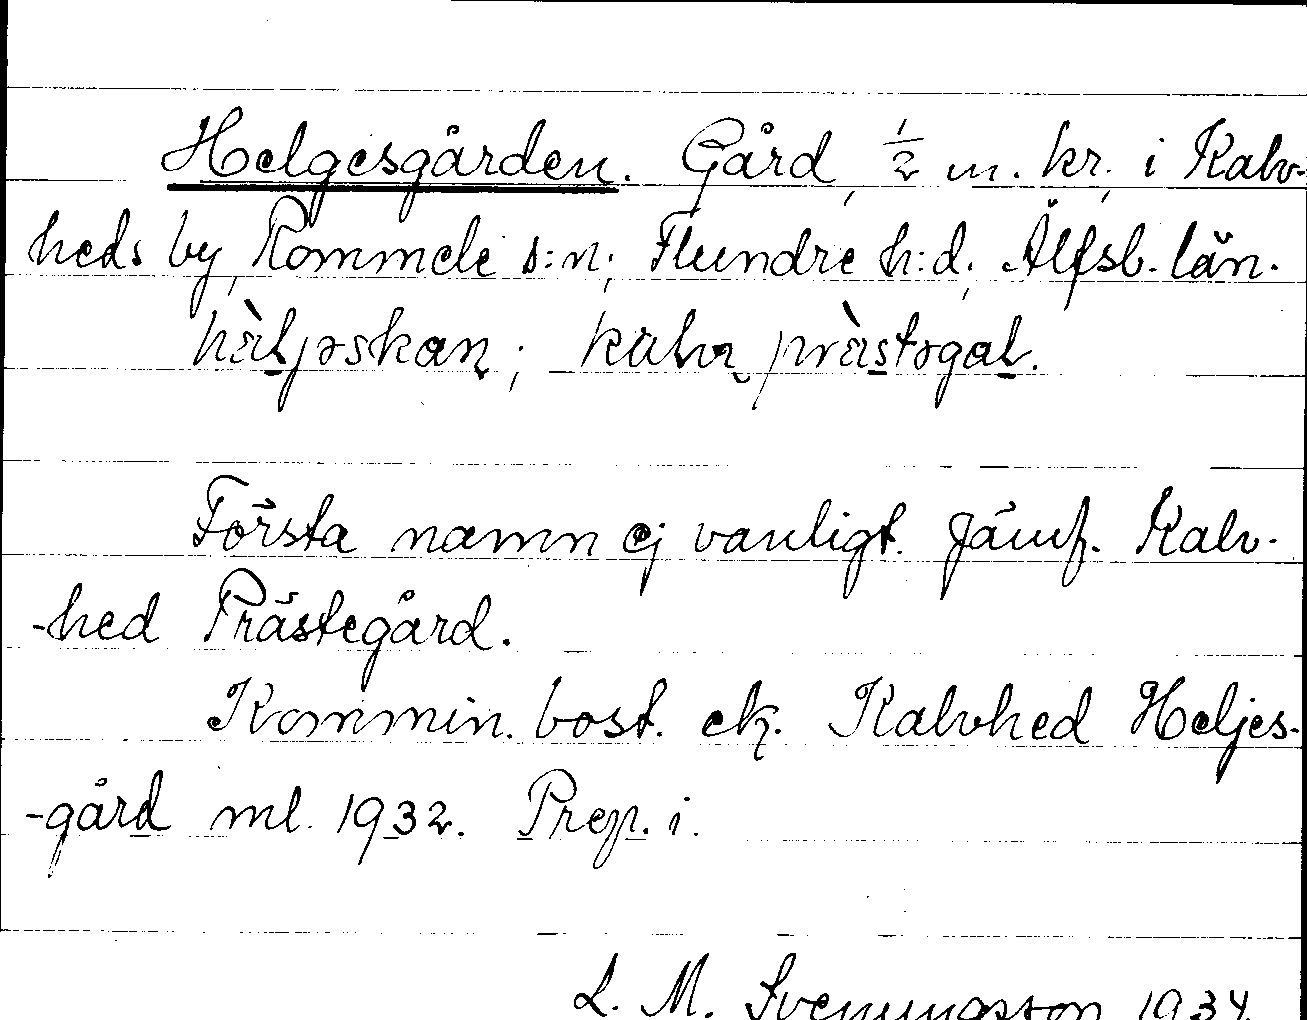 Helgesgården. Gård, 1/2 m. kr. i Kalv-
heds by, Rommele s:n; Flundre h:d; Älfsb. län.
hä̀ljəskan; kalva prä̀stəgaḷ.
Första namn ej vanligt. Jämf. Kalv-
-hed Prästegård.
Kommin. bost. ek. Kalvhed Heljes-
-gård ml. 1932. Prep. i.
L. M. Svenungsson 1934.